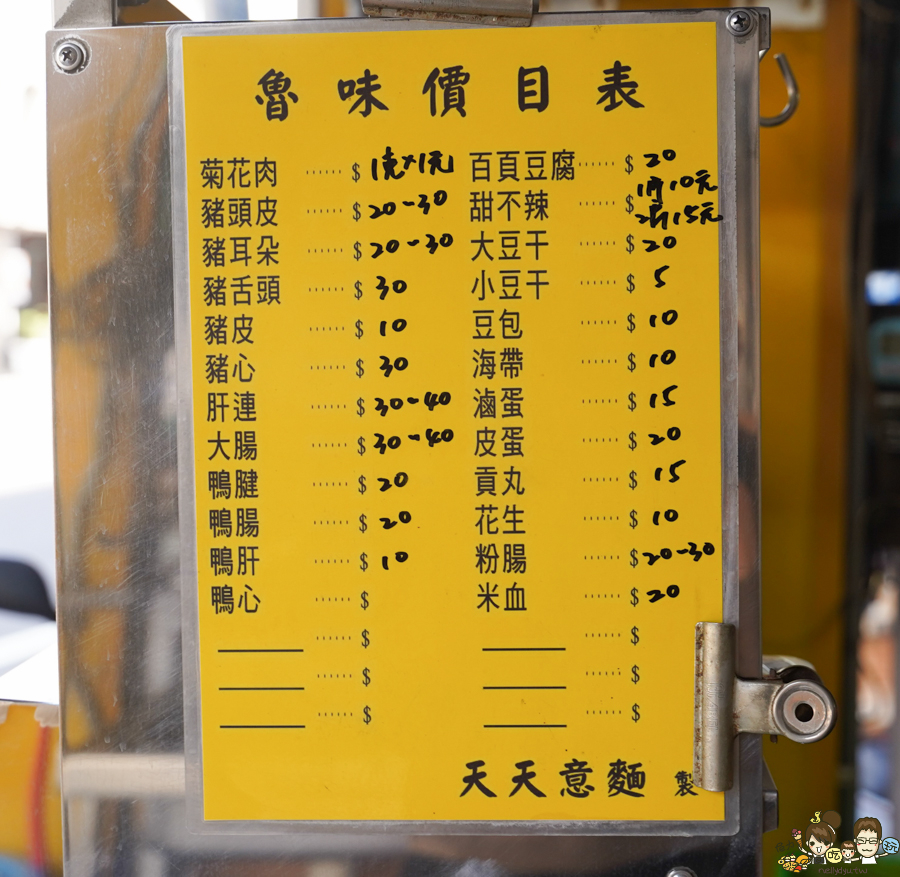 魯味價目表
菊花肉 ...... $ 1克×1元
豬頭皮 ...... $ 20-30
豬耳朵 ...... $ 20-30
豬舌頭 ...... $ 30
豬皮 ...... $ 10
豬心 ...... $ 30
肝連 ...... $ 30-40
大腸 ...... $ 30-40
鴨腱 ...... $ 20
鴨腸 ...... $ 20
鴨肝 ...... $ 10
鴨心 ...... $
...... $
...... $
...... $
百頁豆腐 ...... $ 20
甜不辣 ...... $ 10元
15元
大豆干 ...... $ 20
小豆干 ...... $ 5
豆包 ...... $ 10
海帶 ...... $ 10
滷蛋 ...... $ 15
皮蛋 ...... $ 20
貢丸 ...... $ 15
花生 ...... $ 10
粉腸 ...... $ 20-30
米血 ...... $ 20
...... $
...... $
...... $
天天意麵 製